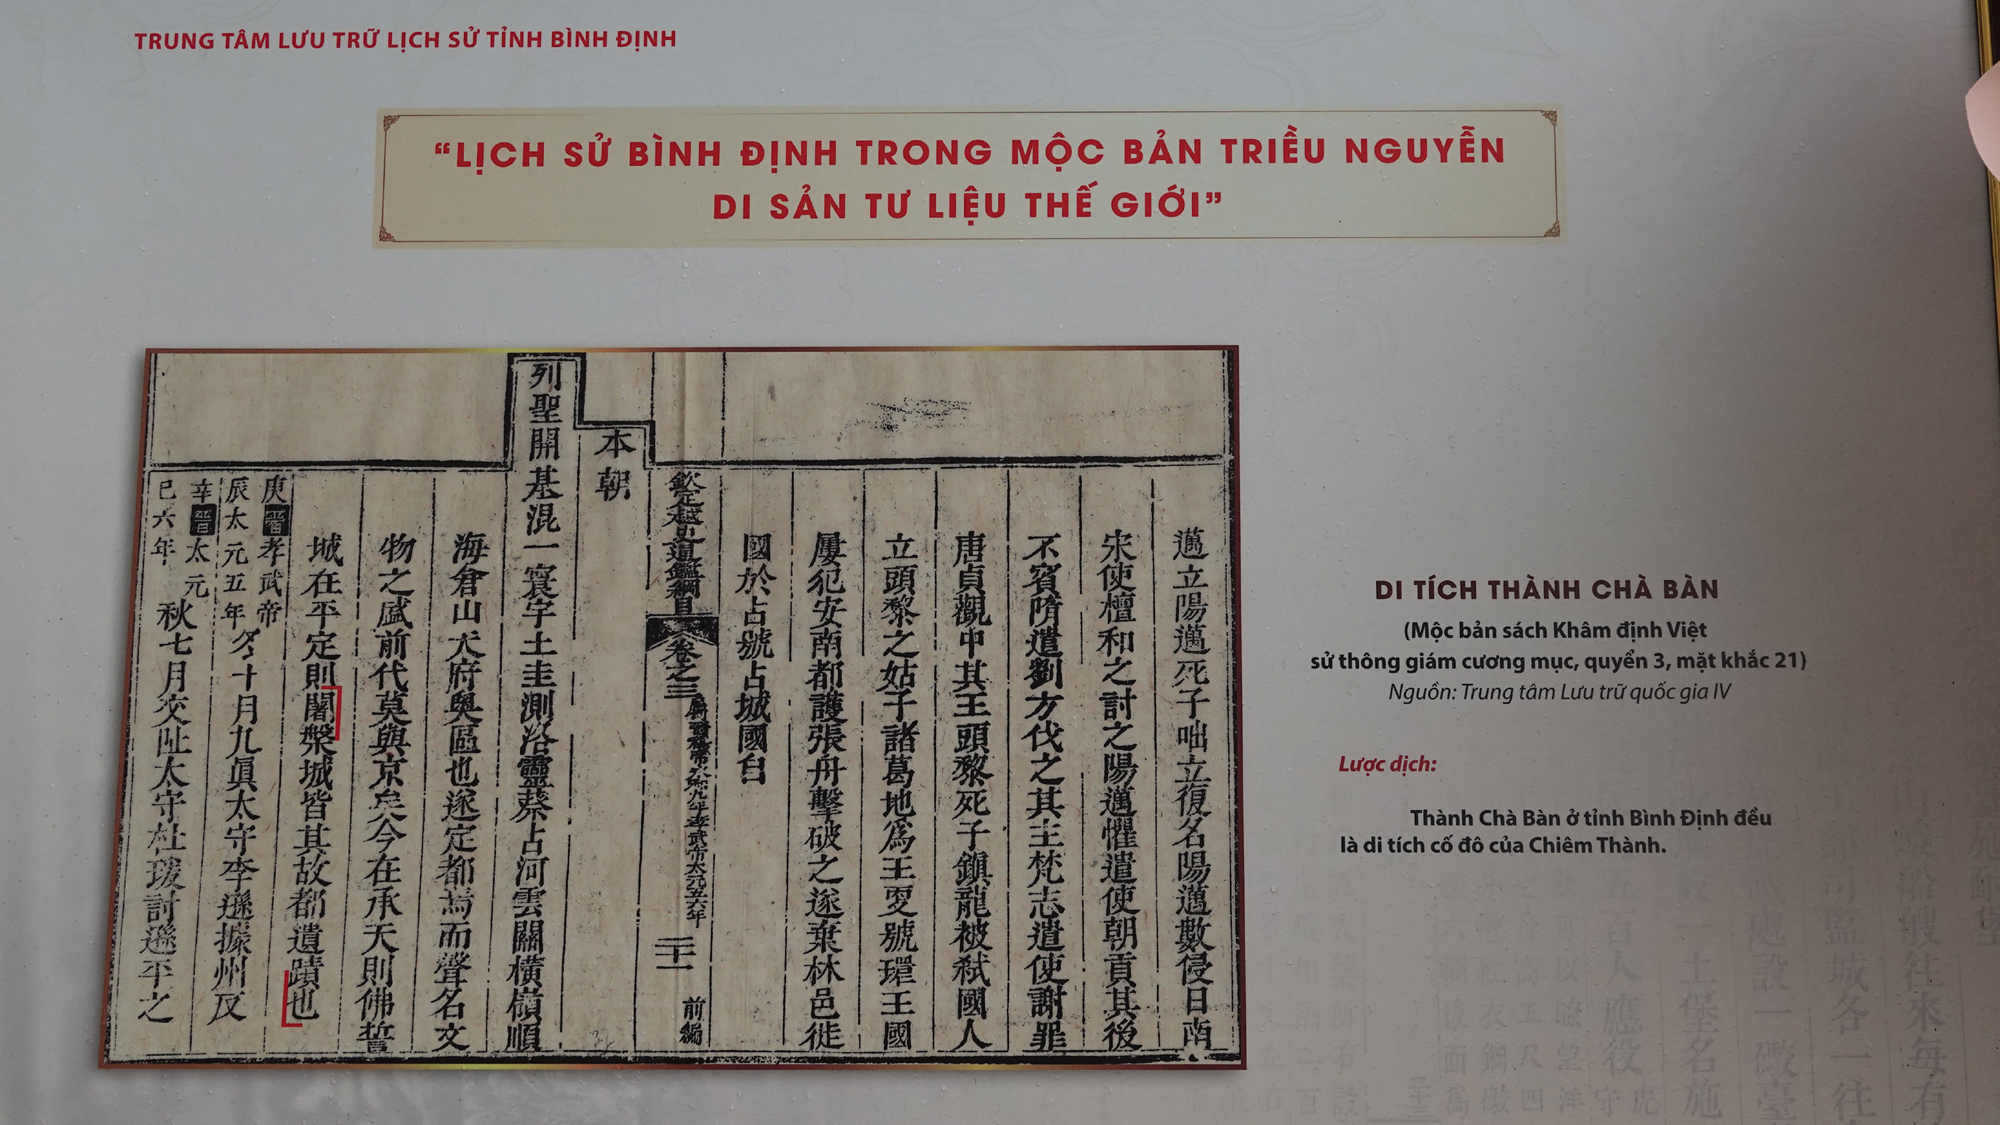 TRUNG TÂM LƯU TRỮ LỊCH SỬ TỈNH BÌNH ĐỊNH
“LỊCH SỬ BÌNH ĐỊNH TRONG MỘC BẢN TRIỀU NGUYỄN
DI SẢN TƯ LIỆU THẾ GIỚI”
邁立陽邁死子咄立復名陽邁數侵日南
宋使檀和之討之陽邁懼遣使朝貢其後
不賓隋遣劉方伐之其主梵志遣使謝罪
唐貞觀中其王頭黎死子鎮龍被弒國人
立頭黎之姑子諸葛地為王更號環王國
屢犯安南都護張舟擊破之遂棄林邑徙
國於占號占城國自
欽定越史通鑑綱目
卷之三
二十一
前編
本朝
列聖開基混一寰宇土圭測洛靈蔡占河雲關橫嶺順
海倉山天府奧區也遂定都焉而聲名文
物之盛前代莫與京矣今在承天則佛誓
城在平定則闍槃城皆其故都遺蹟也
庚晉孝武帝
辰太元五年
冬十月九眞太守李遜據州反
辛晉太元
巳六年
秋七月交阯太守杜瑗討遜平之
DI TÍCH THÀNH CHÀ BÀN
(Mộc bản sách Khâm định Việt
sử thông giám cương mục, quyển 3, mặt khắc 21)
Nguồn: Trung tâm Lưu trữ quốc gia IV
Lược dịch:
Thành Chà Bàn ở tỉnh Bình Định đều
là di tích cố đô của Chiêm Thành.